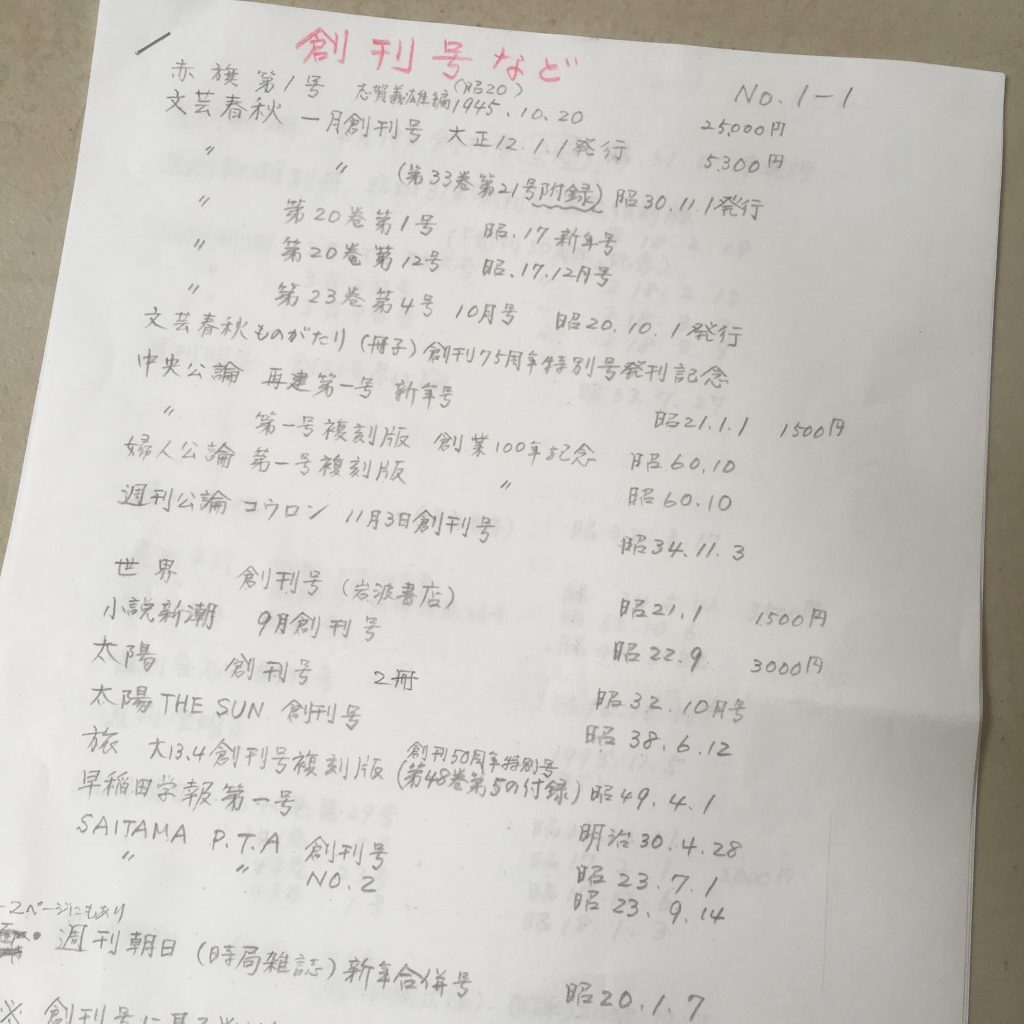 創刊号など
No. 1-1
赤旗 第1号 志賀義雄編 (昭20) 1945.10.20 25,000円
文芸春秋 一月創刊号 大正12.1.1発行 5,300円
〃 〃 (第33巻第21号附録) 昭30.11.1発行
〃 第20巻第1号 昭.17新年号
〃 第20巻第12号 昭.17.12月号
〃 第23巻第4号 10月号 昭20.10.1発行
文芸春秋ものがたり (冊子) 創刊75周年特別号発刊記念
中央公論 再建第一号 新年号 昭21.1.1 1500円
〃 第一号複刻版 創業100年記念 昭60.10
婦人公論 第一号複刻版 〃 昭60.10
週刊公論 コウロン 11月3日創刊号 昭34.11.3
世界 創刊号 (岩波書店) 昭21.1 1,500円
小説新潮 9月創刊号 昭22.9 3000円
太陽 創刊号 2冊 昭32.10月号
太陽 THE SUN 創刊号 昭38.6.12
旅 大13.4創刊号複刻版 創刊50周年特別号 (第48巻第5の付録) 昭49.4.1
早稲田学報 第一号 明治30.4.28
SAITAMA P.T.A 創刊号 昭23.7.1
〃 〃 NO.2 昭23.9.14
-2ページにもあり
・週刊朝日 (時局雑誌) 新年合併号 昭20.1.7
※ 創刊号に